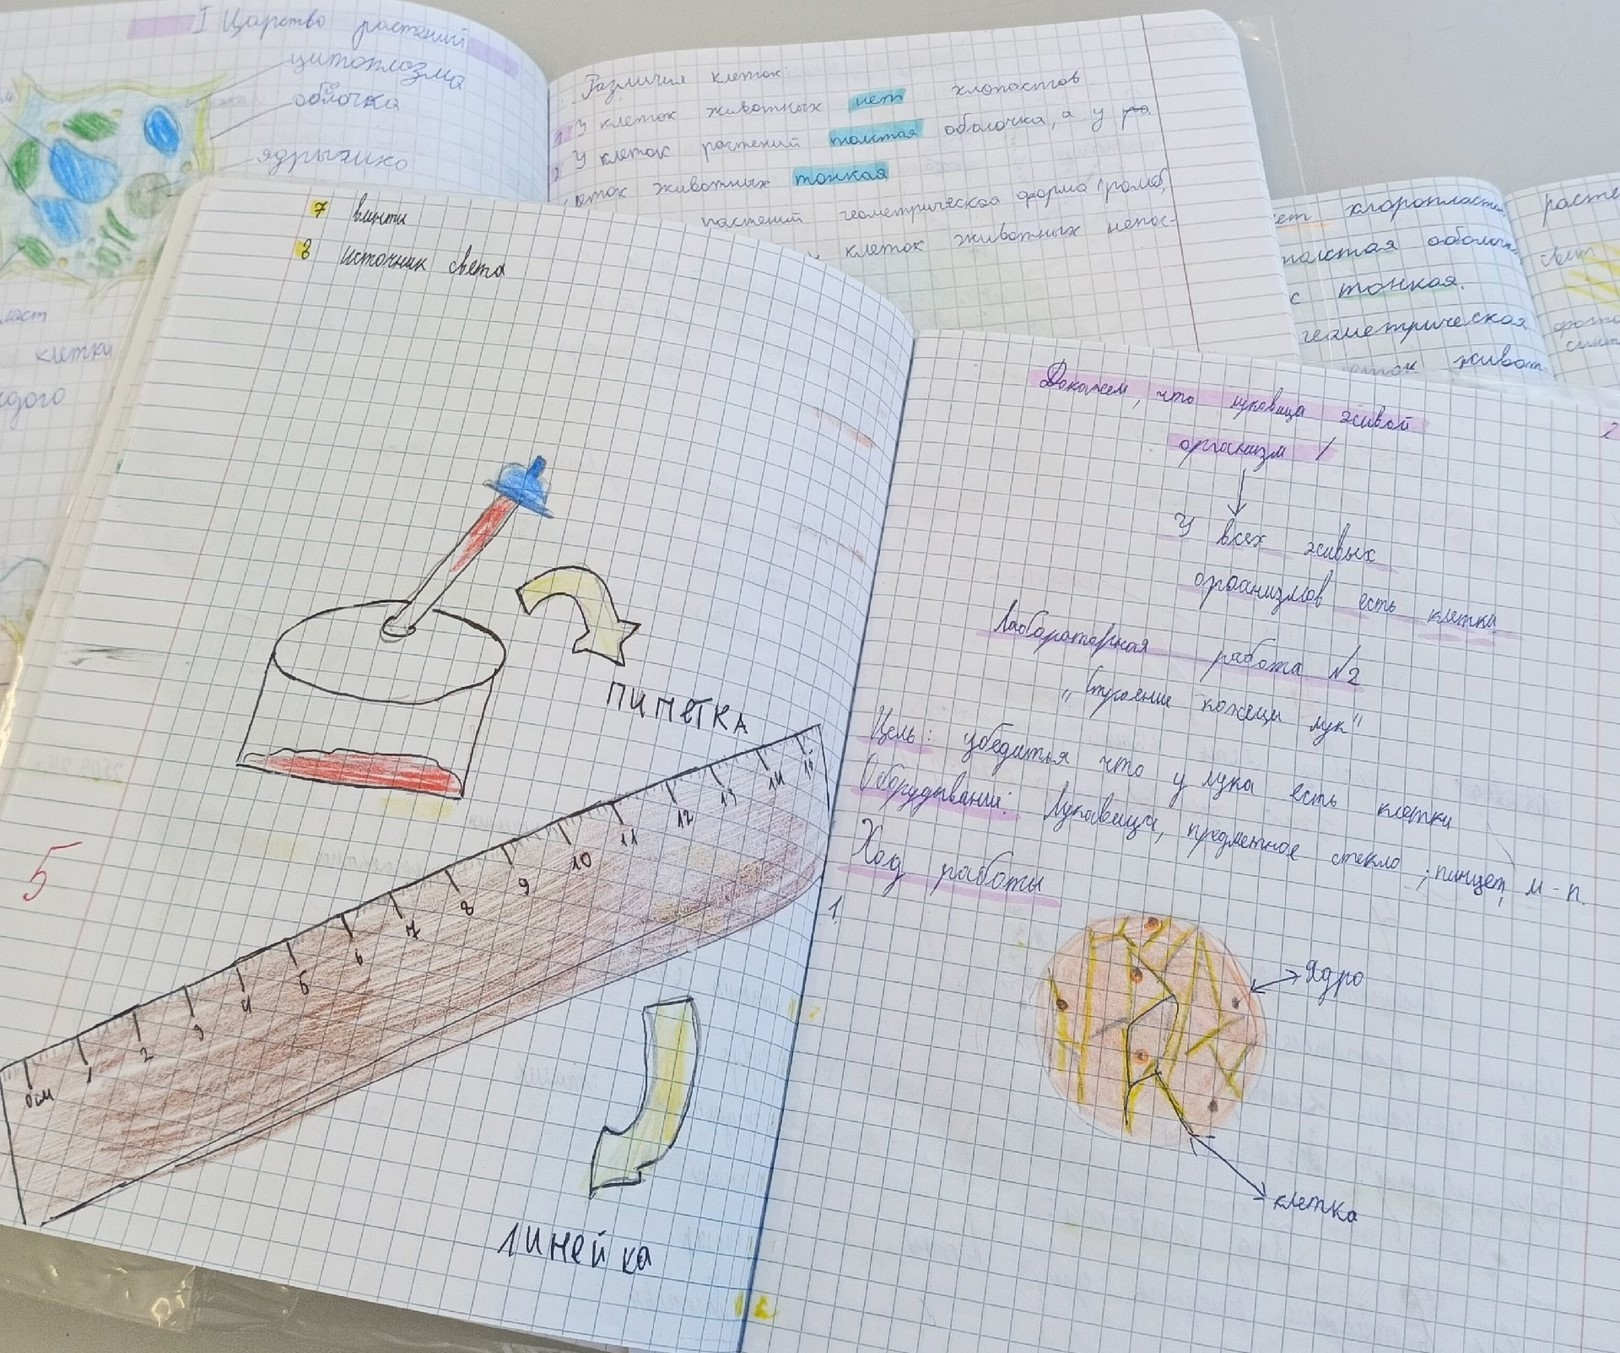 I Царство растений
цитоплазма
оболочка
ядрышко
клетки
Различия клеток:
1. У клеток животных нет хлопастов
2. У клеток растений толстая оболочка, а у
животных тонкая
растений геометрическая форма (ромб,
клеток животных непос-
хлоропласта
толстая
с тонкая.
геометрическая
живот
расте
свет
фото
синт
7 винты
8 источник света
пипетка
0см 1 2 3 4 5 6 7 8 9 10 11 12 13 14 15
5
линейка
Докажем, что луковица живой
организм !
У всех живых
организмов есть клетки
Лабораторная работа №2
„Строение кожецы лук"
Цель: убедиться что у лука есть клетки
Оборудывание: Лукавица, предметное стекло, пинцет, м-п.
Ход работы
1.
Ядро
клетка
2